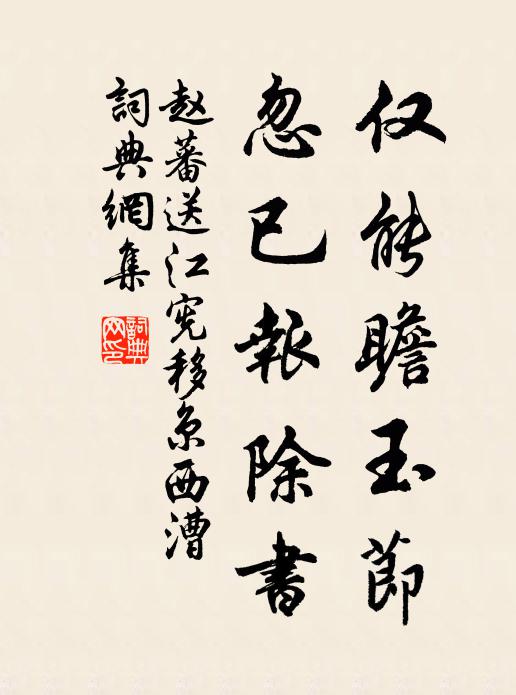 仅能瞻玉節
忽已報除書
赵蕃送江宪移京西漕
詞典網集
詞典网印